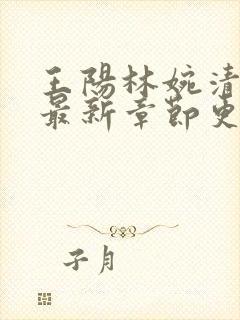 王陽林婉清
最新章節更
子月